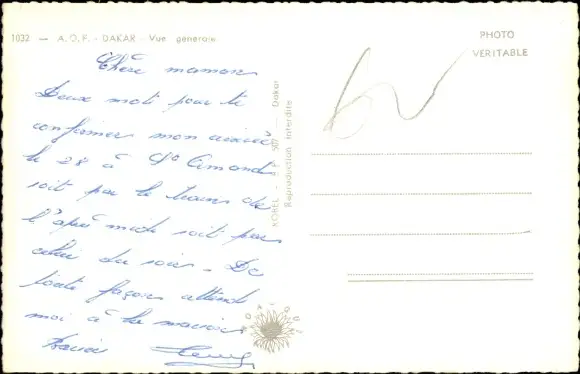 1032 — A.O.F. - DAKAR - Vue générale
Chère maman
Deux mots pour te
confirmer mon arrivée
le 28 à St Amand
soit par le train de
l'après midi soit par
celui du soir - De
toute façon attend
moi à la maison
Baisers
KOREL - B.P. - Dakar
Reproduction Interdite
PHOTO
VERITABLE